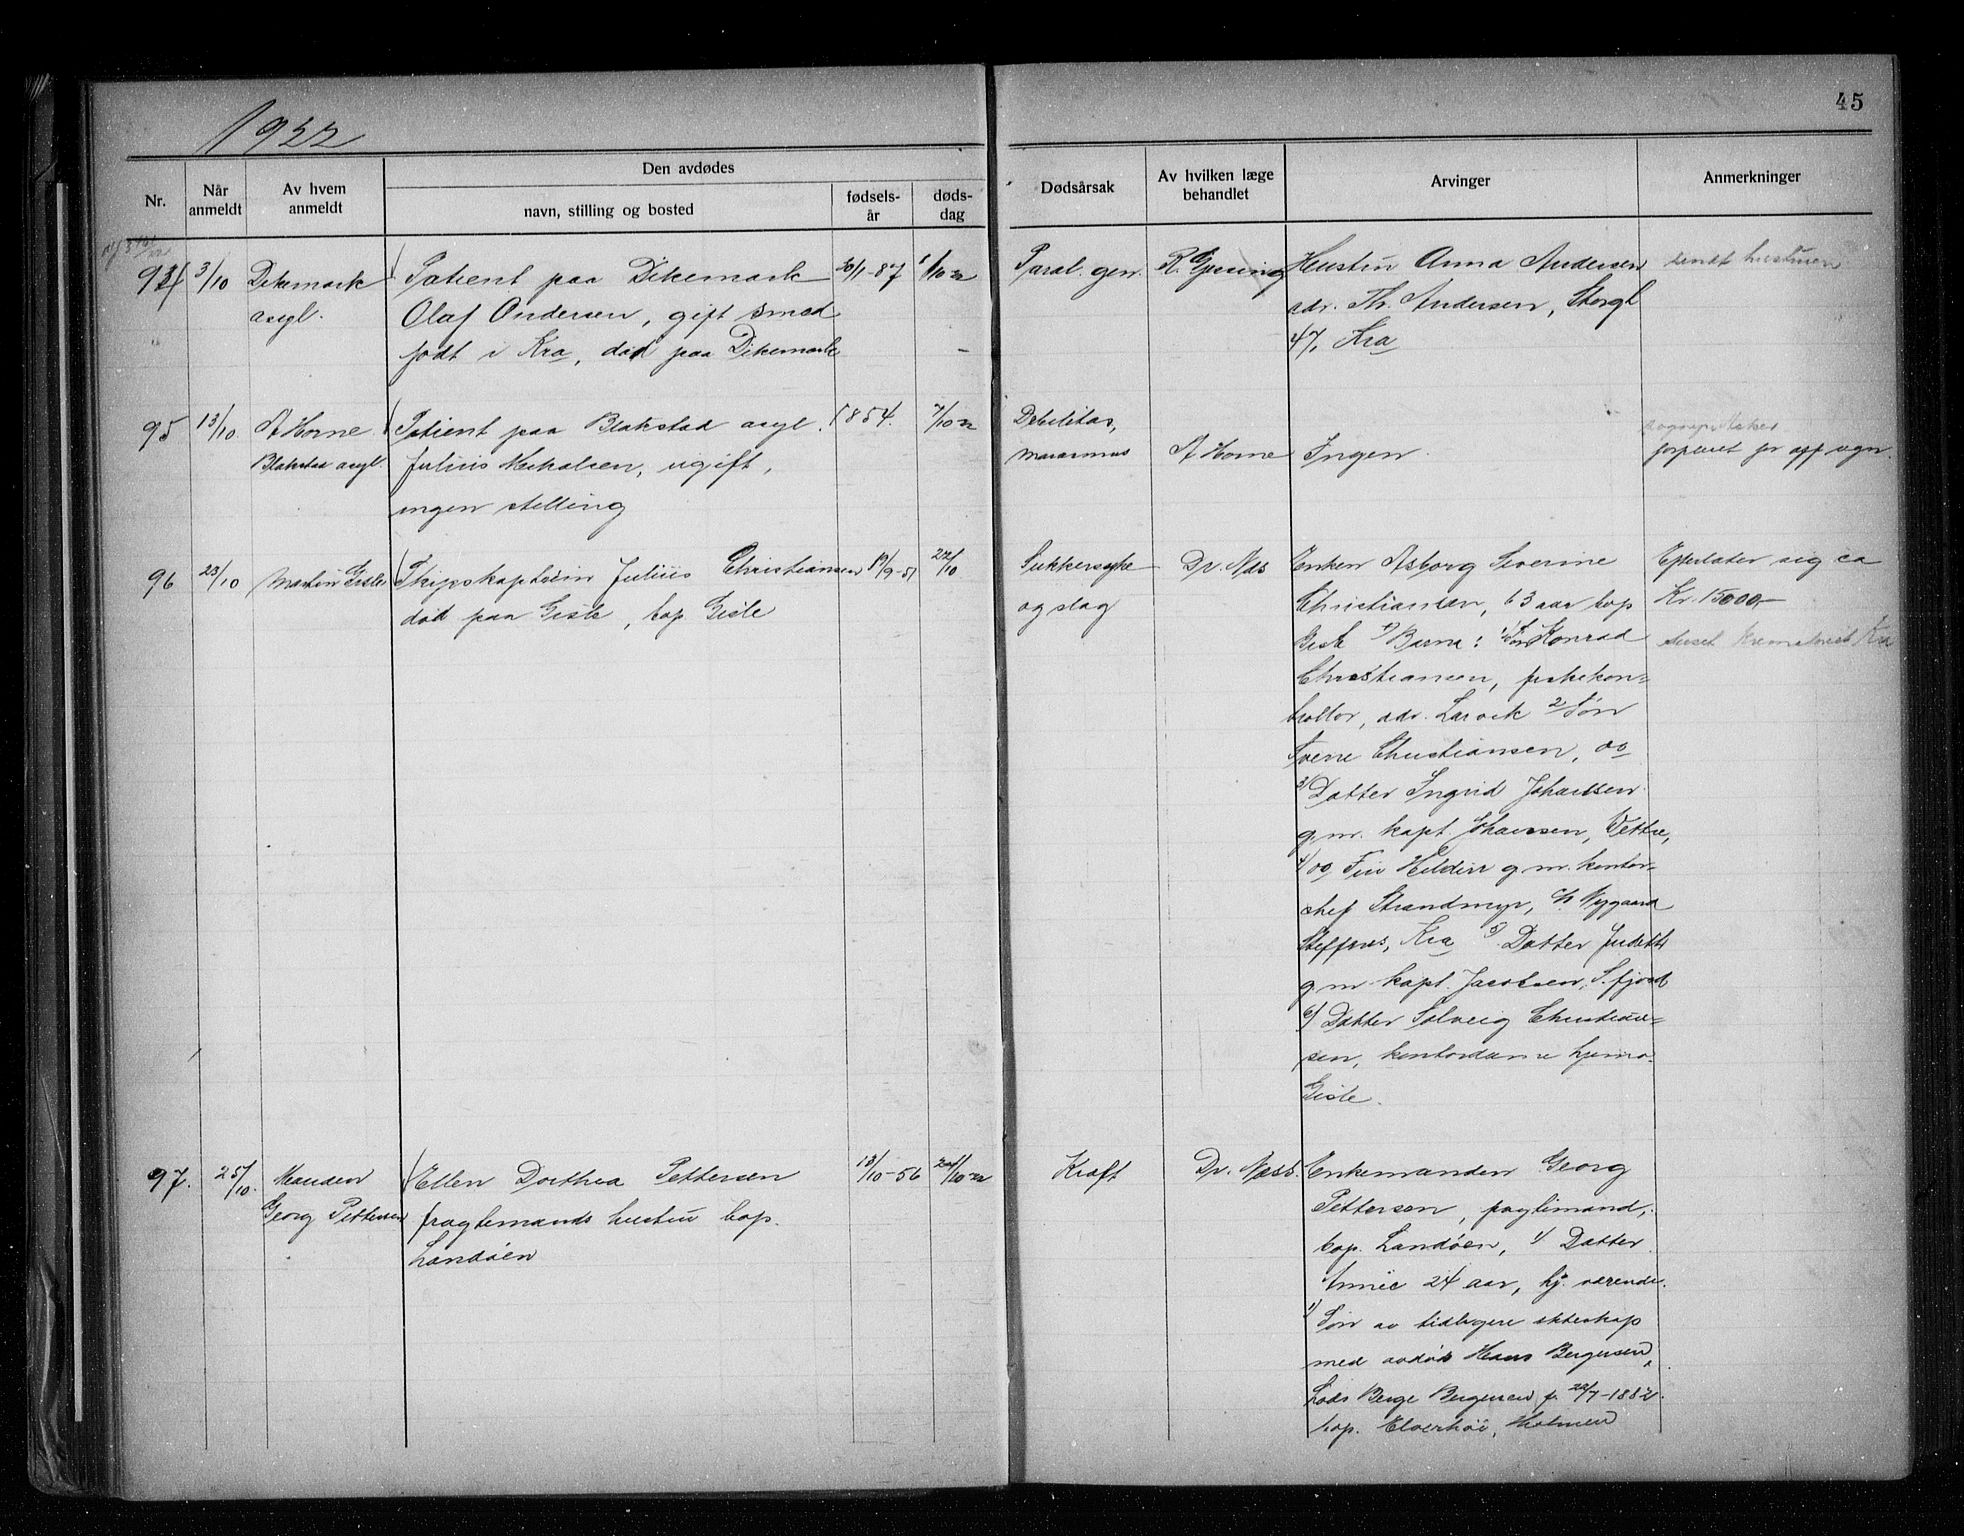 1922
45
Den avdødes
Nr.
Når anmeldt
Av hvem anmeldt
navn, stilling og bosted
fødsels-år
døds-dag
Dødsårsak
Av hvilken læge behandlet
Arvinger
Anmerkninger
94 3/10 Dikemark asyl.
Patient paa Dikemark
Olaf Andersen, gift smed
født i Kra, død paa Dikemark
20/1-87 1/10-22
Paral. gen. R. Gjessing
Hustru Anna Andersen
adr. Th. Andersen, Storgt
47, Kra
sendt hustruen
95 13/10. A Horne
Blakstad asyl.
Patient paa Blakstad asyl.
Julius Mikalsen, ugift,
ingen stilling
1854. 7/10-22
Debilitas,
marasmus
A Horne
Ingen.
Asker
forpleiet for opf. regn.
96 23/10 Martin Gisle
Skipskaptein Julius Christiansen
død paa Gisle, bop Gisle
19/9-51 22/10
Sukkersyke
og slag
Dr. Næs
Enken Asborg Severine
Christiansen, 63 aar bop
Gisle Barna: 1/ Søn Konrad
Christiansen, fiskekon-
trollør, adr. Larvik 2/ Søn
Sverre Christiansen, do
3/ Datter Ingrid Johansen
g.m. kapt. Johansen, Vettre,
4/ do, Fru Hildur g.m. kontor-
chef Strandmyr, Nygaard
Steffens, Kra 5/ Datter Judith
g.m. kapt. Jacobsen, S.fjord
6/ Datter Solveig Christian-
sen, kontordame hjemme
Gisle.
Efterlater sig ca
Kr. 15000,-
Krematoriet Kra
97. 25/10. Manden
Georg Pettersen
Ellen Dorthea Pettersen
fragtemands hustru bop.
Landøen
13/10-56 24/10-22
Kræft
Dr. Næss.
Enkemanden Georg
Pettersen, fragtemand,
bop. Landøen, 1/ Datter
Annie 24 aar, hj. værende.
1/ Søn av tidligere ekteskap
med avdøde Hans Bergersen,
Lods Berge Bergersen f. 22/7-1882.
bop. Elverhøi, Holmen